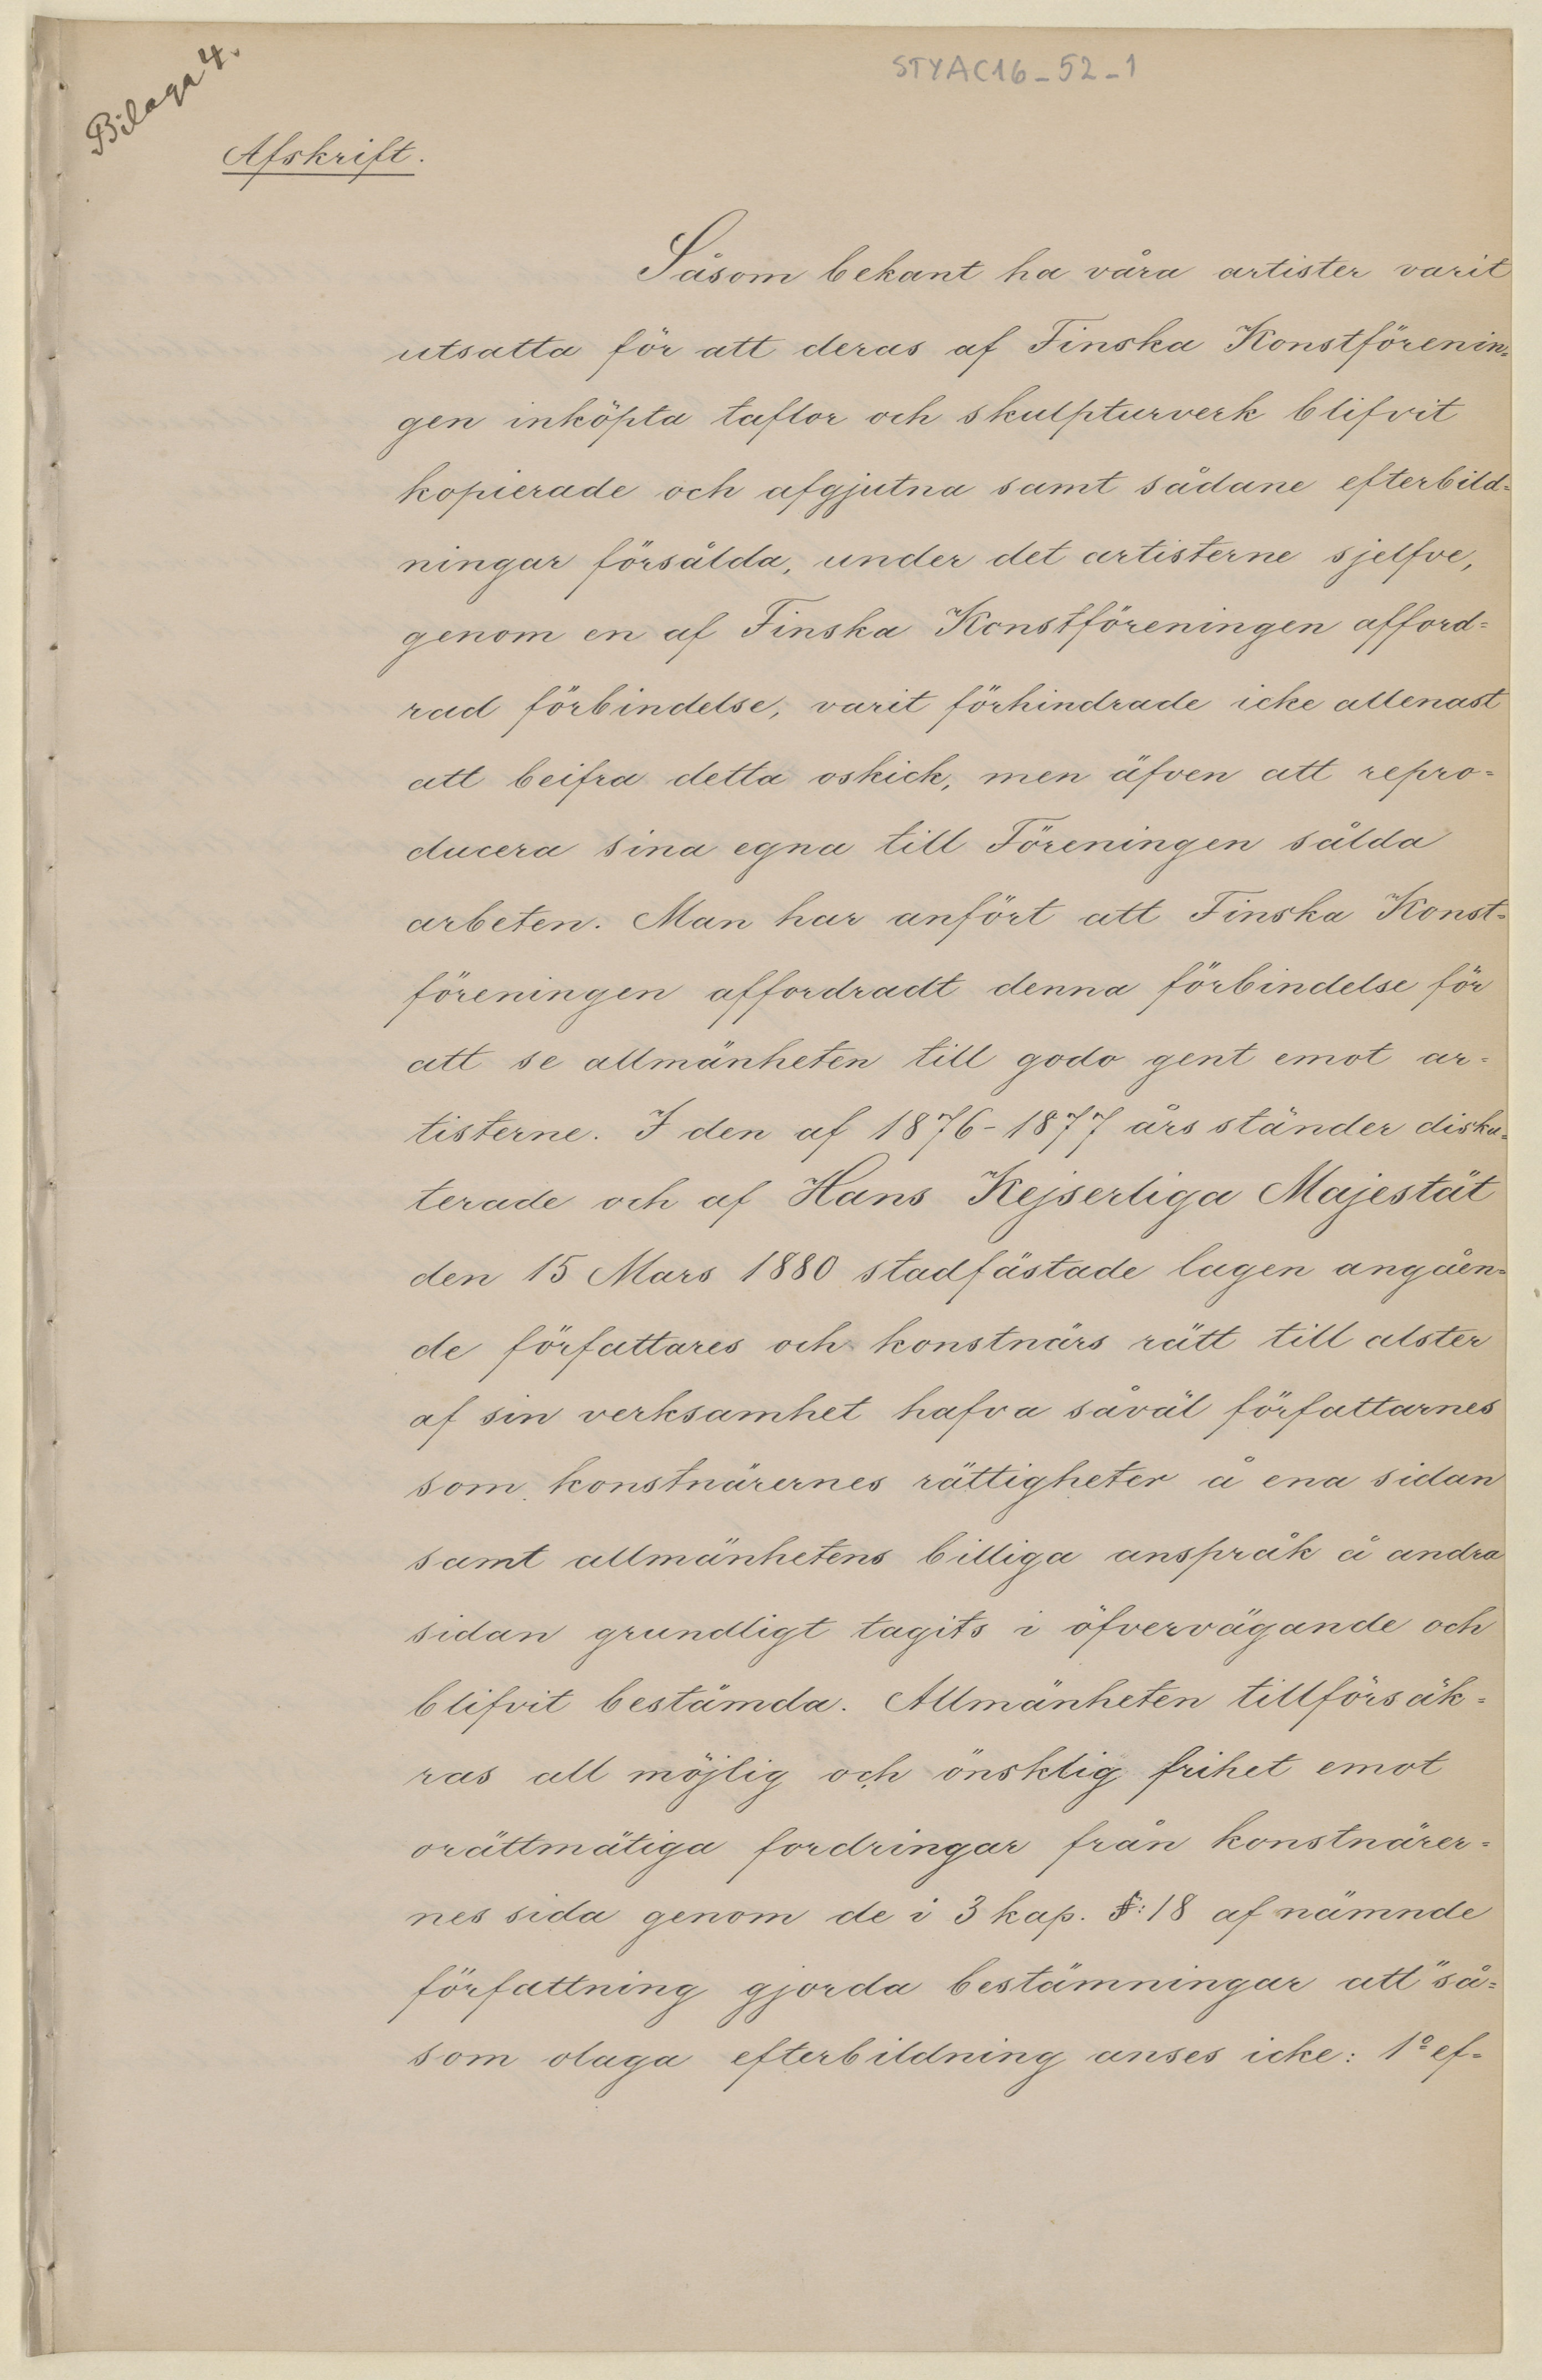 Bilaga 4.
STYAC16-52-1
Afskrift.
Såsom bekant ha våra artister varit
utsatta för att deras af Finska Konstförenin=
gen inköpta taflor och skulpturverk blifvit
kopierade och afgjutna samt sådane efterbild=
ningar försålda, under det artisterne sjelfve,
genom en af Finska Konstföreningen afford=
rad förbindelse, varit förhindrade icke allenast
att beifra detta oskick, men äfven att repro=
ducera sina egna till Föreningen sålda
arbeten. Man har anfört att Finska Konst=
föreningen affordradt denna förbindelse för
att se allmänheten till godo gent emot ar=
tisterne. I den af 1876-1877 års ständer disku=
terade och af Hans Kejserliga Majestät
den 15 Mars 1880 stadfästade lagen angåen=
de författares och konstnärs rätt till alster
af sin verksamhet hafva såväl författarnes
som konstnärernes rättigheter å ena sidan
samt allmänhetens billiga anspråk å andra
sidan grundligt tagits i öfvervägande och
blifvit bestämda. Allmänheten tillförsäk=
ras all möjlig och önsklig frihet emot
orättmätiga fordringar från konstnärer=
nes sida genom de i 3 kap. §:18 af nämnde
författning gjorda bestämningar att "så=
som olaga efterbildning anses icke: 1º ef=